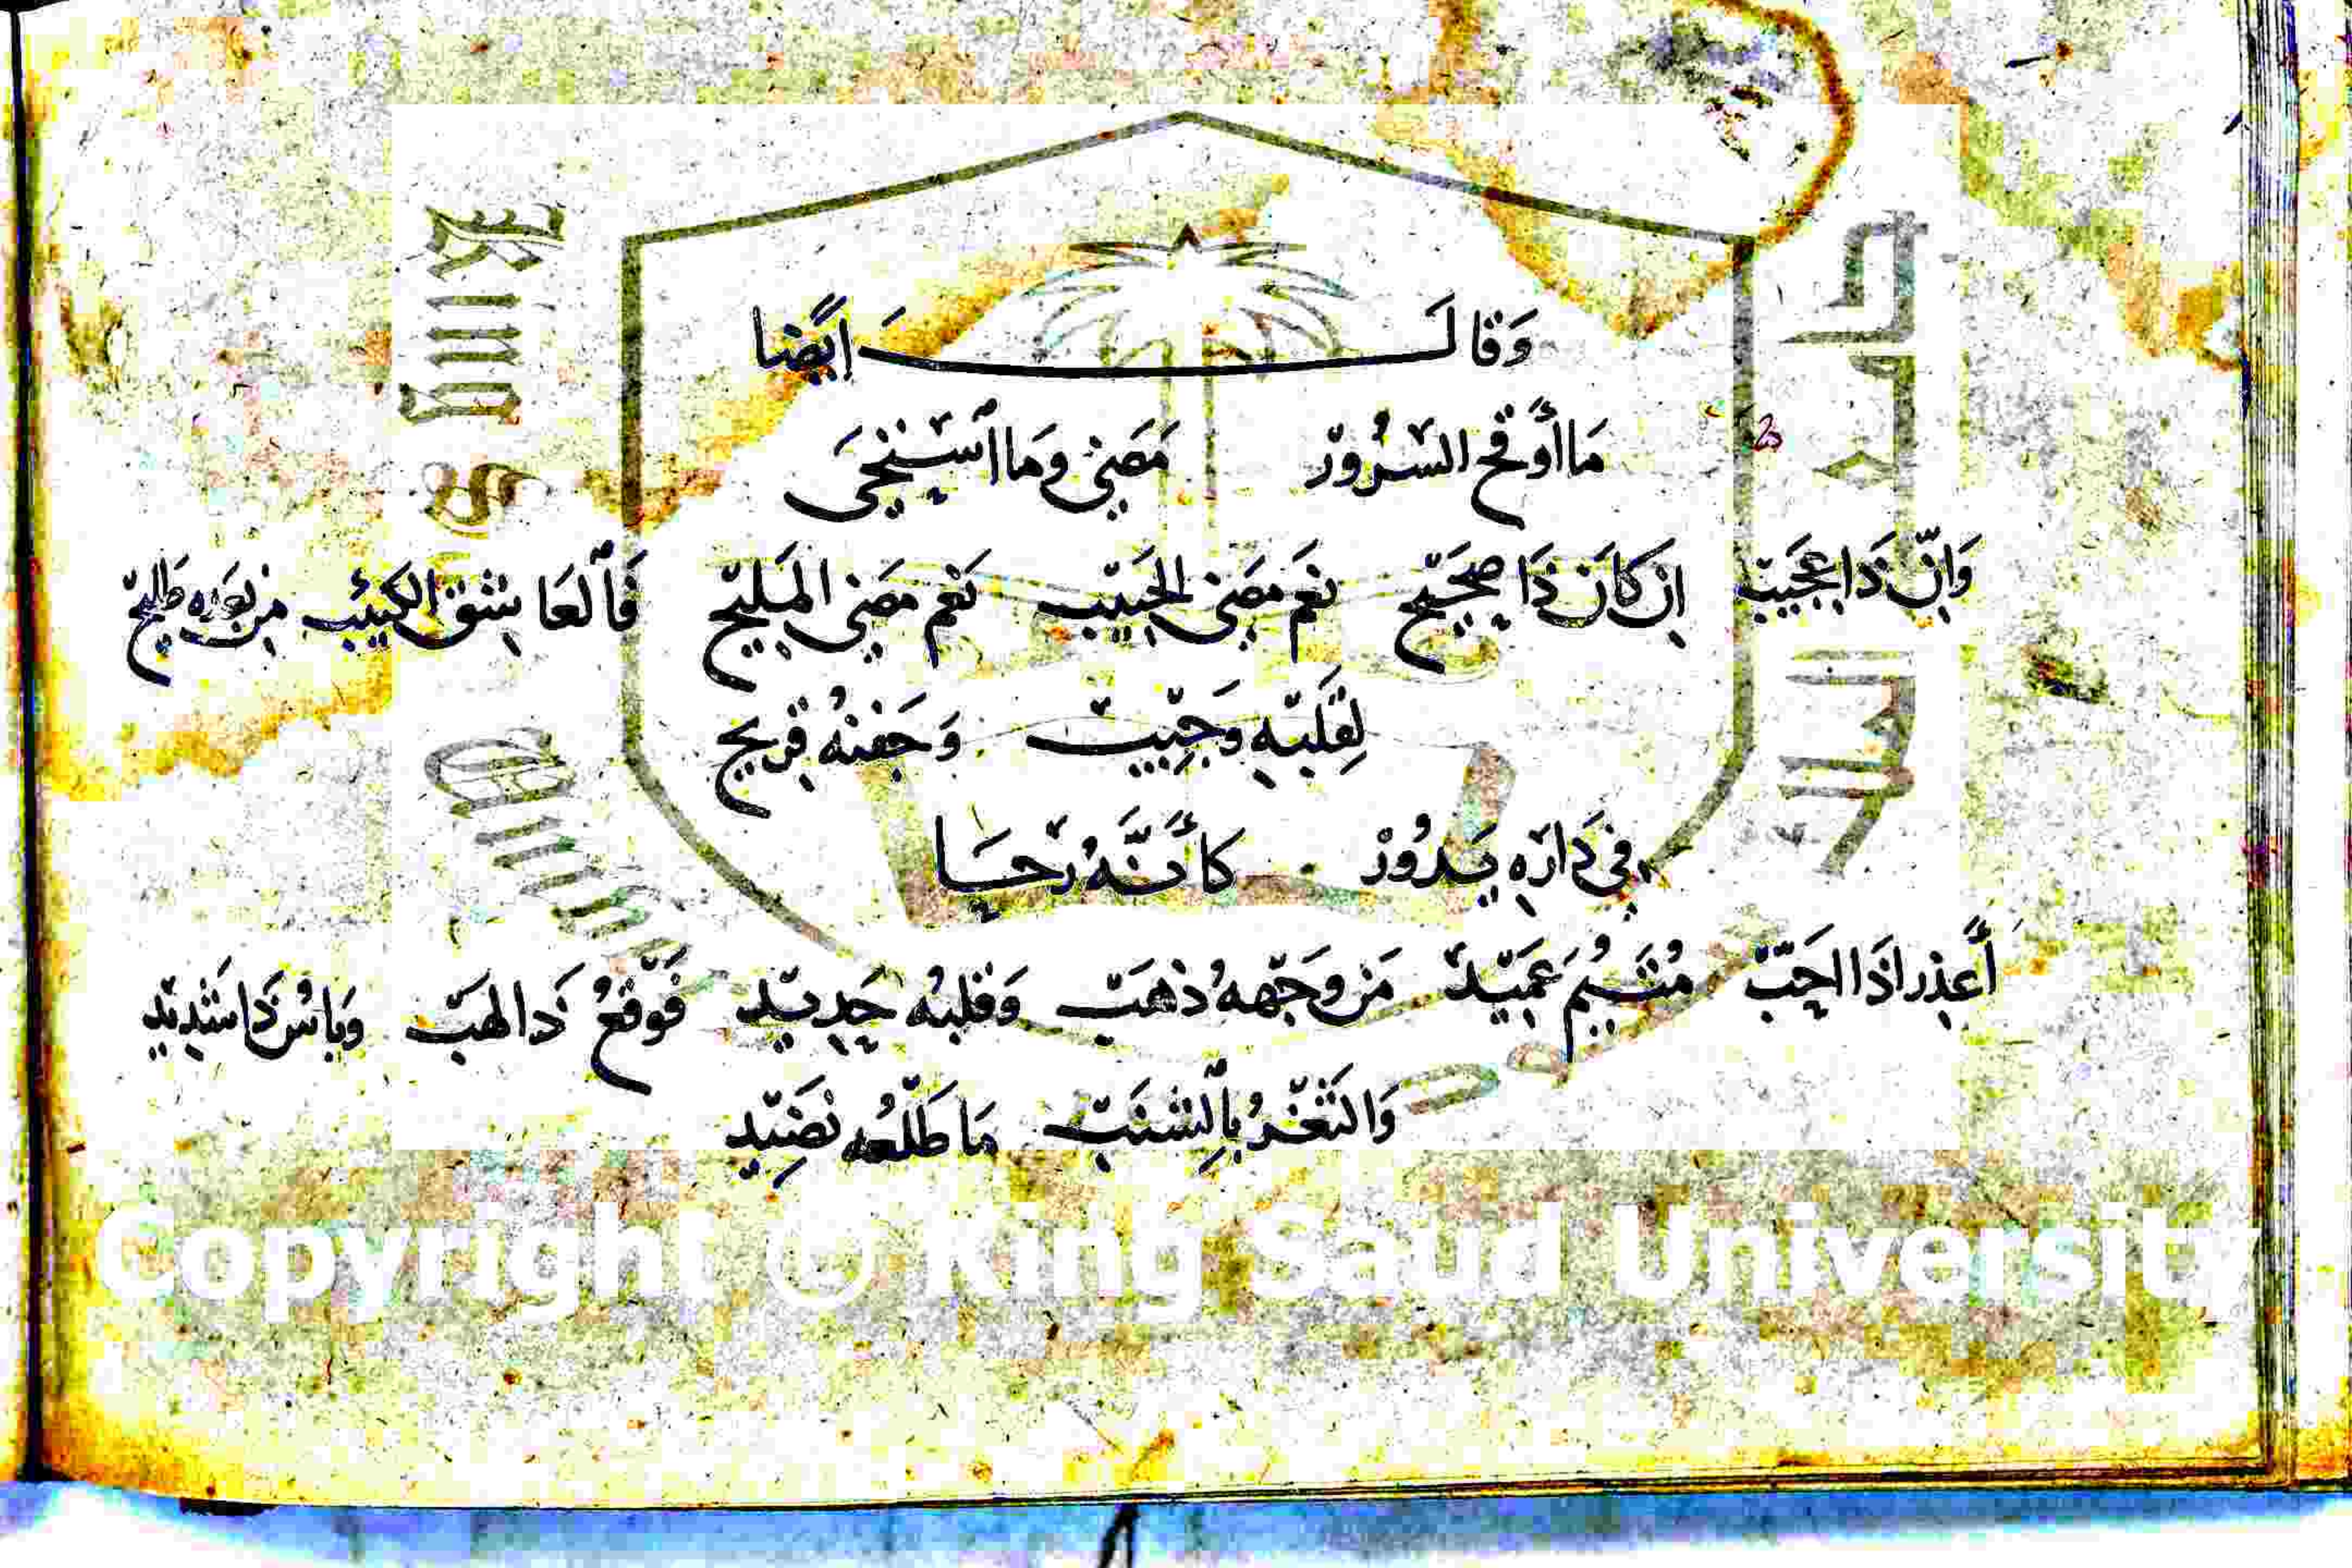 وَقَالَ ايًضا
مَا أَوقح السّرُورْ مَضَىٰ وَمَا ٱسْتَحَىَ
وَانّ ذَا عَجَيبْ اِن كَانَ ذَا صحَيحْ نعَم مضَى الحَبيبْ نعَم مَضى المَليحْ فَٱلعَاشق الكئيبْ مِن بَعدِه طَليحْ
لِقَلبْهِ وَجِيبْ وَجَفنهُ قريحْ
فى دَارِهِ يَدُورْ كأَنَّهُ رَحَا
أَعذِر اذَا احَبّ مُتَيمُ عَميَدْ مَن وَجَههُ ذهَبْ وَقلبُه حَديدْ فَوَقعُ ذَا لهَبْ وَبَاسُ ذَا شَديد
وَالثَغْرُ بِالشنَبْ مَا طَلْعُه نَضَيِد
King S Univer
Copyright © King Saud University